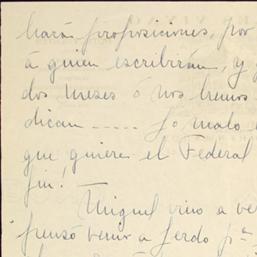 harán proposiciones, por
á quien escribirán, y
dos meses ó nos iremos
dican ..... Lo malo
que quiere el Federal
fin!
Miguel vino a ve
pensó venir a Ferdo pª